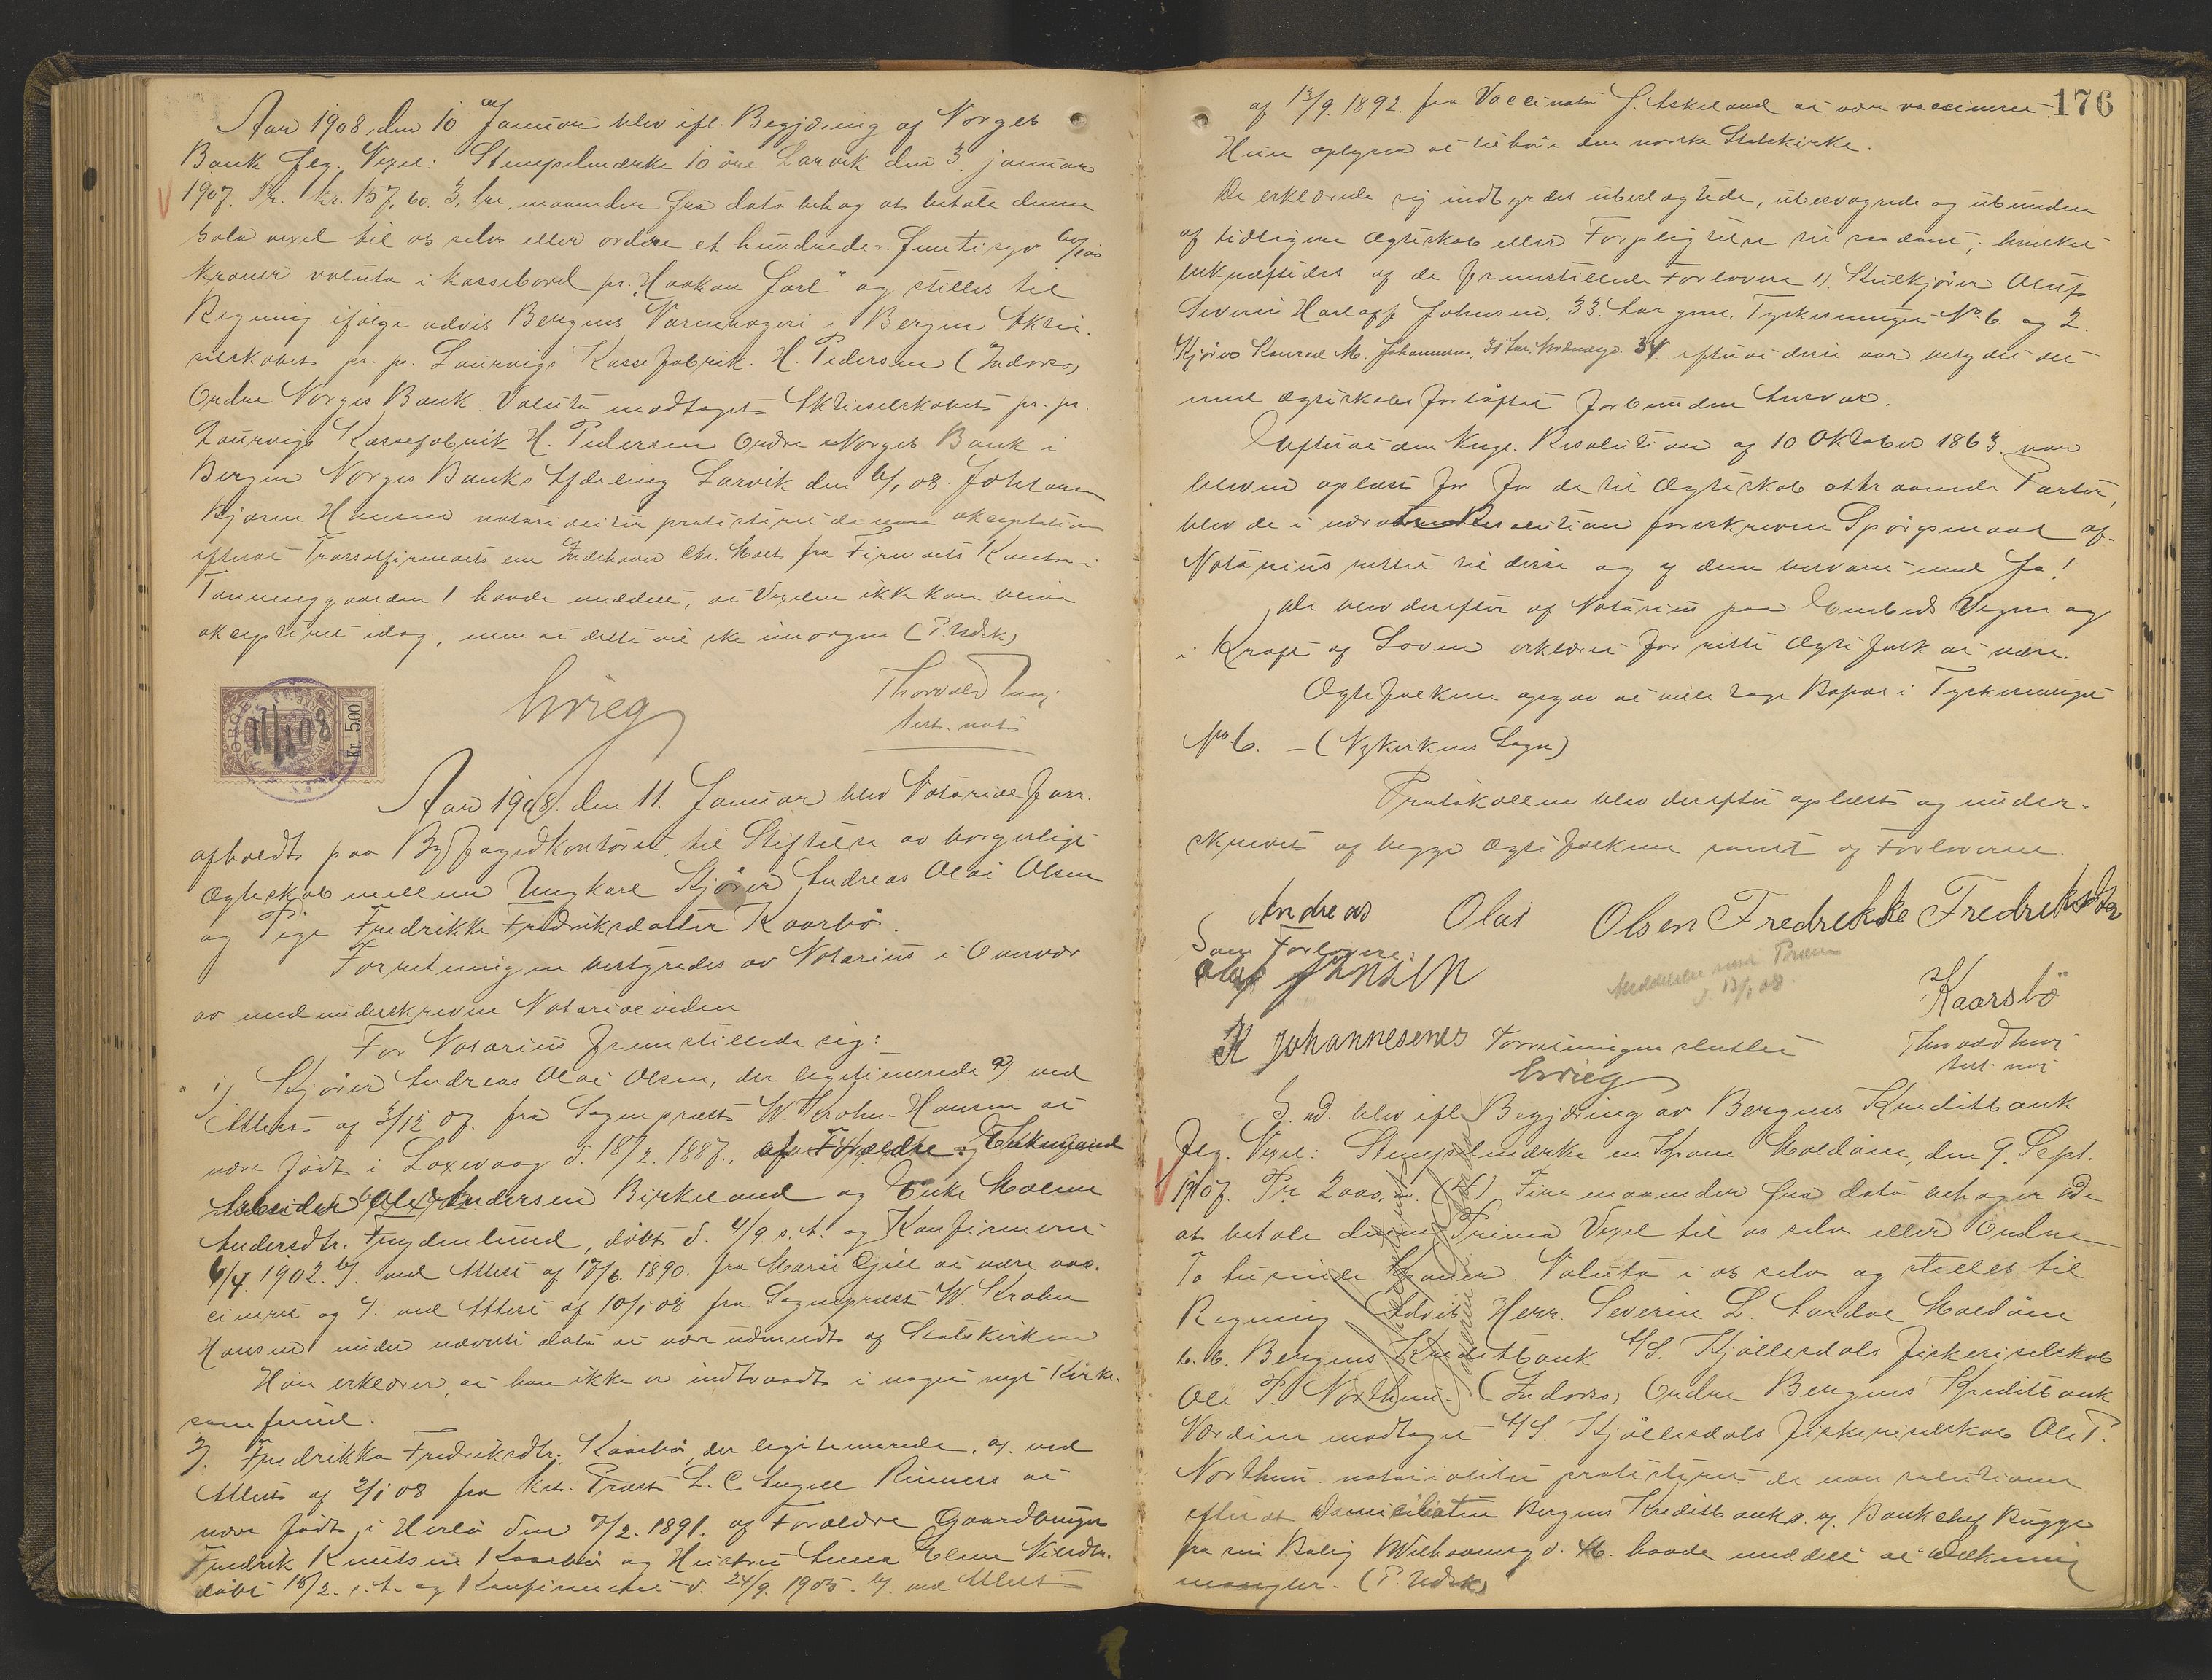 Aar 1908, den 10 Januar blev ifl. Begjæring af Norges
Bank flg. Vexel: Stempelmærke 10 øre Larvik den 3. januar
1907. Pr. kr. 157,60. 3, tre, maaneder fra dato behag at betale denne
sola vexel til os selv eller ordre et hundrede & femti syv 60/100
kroner valuta i kassebord pr. "Haakon Jarl" og stilles til
Regning ifølge advis Bergens Varem i Bergen Aktie-
selskabet pr. pr. Laurvigs Kassefabrik. H. Pedersen (Indorso,
Ordre Norges Bank. Valuta modtaget Aktieselskabet pr. pr.
Laurvigs Kassefabrik H. Pedersen Ordre Norges Bank i
Bergen Norges Banks Afdeling Larvik den 6/1 08. Joh Larsen
Bjarne Hansen notarialiter protesteret de non akceptation
efterat Trassatfirmaets ene Indehaver Chr. fra Firmaets Kontor i
1 havde meddelt, at Vexelen ikke kan blive
akcepteret idag, men at dette vil ske imorgen (P. Udsk)
Grieg
Thorvald
test. not.
NORGES 11/1 08 kr. 500
Aar 1908. den 11. Januar blev Notarialforr.
afholdt paa Byfogedkontoret, til Stiftelse av borgerligt
Ægteskab mellem Ungkarl Kjører Andreas Olai Olsen
og Pige Fredrikke Fredriksdatter Kaarbø.
Forretningen bestyredes av Notarius i Overvær
av medunderskrevne Notarialvidne
For Notarius fremstillede sig:
1) Kjører Andreas Olai Olsen, der legitimerede a) ved
Attest af 3/12 07. fra Sogneprest W. Krohn-Hansen at
være født i Laxevaag d. 18/2. 1887., af Forældre:
Arbeider Ole Andersen Birkeland og Enke Malene
Andersdtr. Frydenlund, døbt d. 4/9 s. A. og Konfirmeret
6/4 1902. b). ved Attest af 17/6. 1890. fra Marie Gjil at være vac-
cineret og c). ved Attest af 10/1 08 fra Sogneprest W. Krohn
Hansen under nævnte dato at være udmeldt af Statskirken
Han erklærer, at han ikke er indtraadt i noget nyt Kirke-
samfund.
2). Fredrikka Fredriksdtr. Kaarbø, der legitimerede, a). ved
Attest af 2/1 08 fra Kst. Præst L. C. Angell-Rinners at
være født i Herlø den 7/2. 1891. af Forældre Gaardbruger
Fredrik Knutsen Kaarbø og Hustru Anna Elene Nilsdtr.
døbt 18/2. s. A. og Konfirmeret d. 24/9. 1905. b). ved Attest
176
af 13/9. 1892. fra Vaccinatør J. Askeland at være vaccineret.
Hun oplyser at tilhøre den norske Statskirke.
De erklærede sig indbyrdes ubeslægtede, ubesvogrede og ubunden
af tidligere Ægteskab eller Forpligtelse til saadant; hvilket
bekræftedes af de fremstillede Forlovere 1). Kulkjører Oluf
Severin Johnsen, 33. Aar gml. No. 6. og 2.
Kjører Konrad M. Johannesen, 31 Aar, Nordnæsgd. 34. efterat disse var betydet det
med Ægteskabsforløftet forbunden Ansvar.
Efterat den Kngl. Resolution af 10 Oktober 1863. var
bleven oplæst for for de til Ægteskab attraaende Parter,
blev de i nævnte Resolution foreskrevne Spørgsmaal af
Notarius rettet til disse og af dem besvaret med Ja!
De blev derefter af Notarius paa Embeds Vegne og
i Kraft af Loven erklæret for rette Ægtefolk at være.
Ægtefolkene opgav at ville tage Bopæl i
No. 6. – (Nykirkens Sogn)
Protokollen blev derefter oplæst og under-
skrevet af begge Ægtefolkene samt af Forloverne.
Andreas Olai Olsen Fredrekke Fredreksdtr
Kaarsbö
Som Forlovere:
Oluf Jonsen
Meddelelse med Præsten
d. 13/1 08.
K Johannesenes Forretningen sluttet
Grieg
Thorvald
test. not.
S. D. blev ifl. Begjæring av Bergens Kreditbank
flg. Vexel: Stempelmærke en Krone Maldøen, den 9. Sept.
1907. Pr 2000,00. (4) Fire maaneder fra dato behager De
at betale denne Prima Vexel til os selv eller Ordre
To tusinde Kroner. Valuta i os selv og stilles til
Regning Advis Herr. Severin L. Maldøen
b. b. Bergens Kreditbank A/S. Kjøllesdals fiskeriselskab
Ole P. Northun. (Indorso, Ordre Bergens Kreditbank
Værdien modtaget A/S. Kjøllesdals fiskeriselskab Ole P.
Northun. notarialiter protesteret de non solutione
efterat Domiciliaten Bergens Kreditbank v. Bankchef Rügge
fra sin Bolig havde meddelt at Dækning
mangler. (P. Udsk)